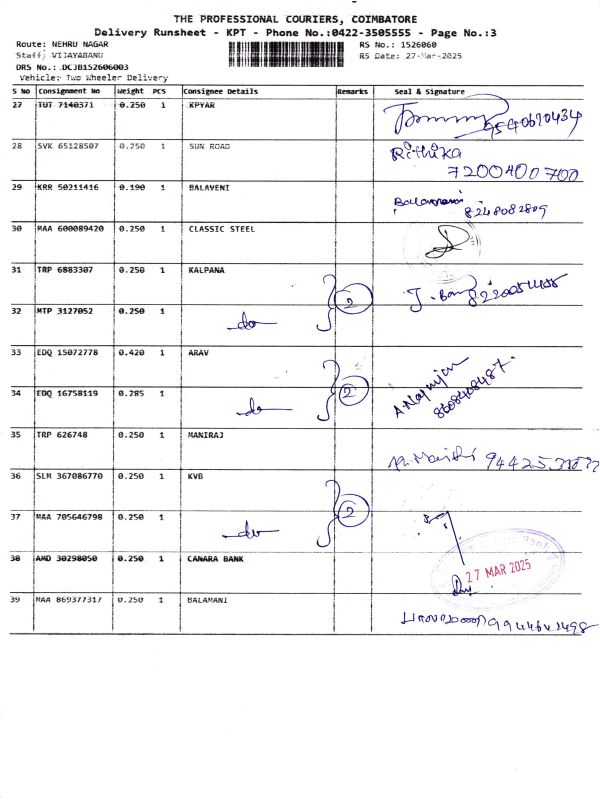 THE PROFESSIONAL COURIERS, COIMBATORE
Delivery Runsheet - KPT - Phone No.:0422-3505555 - Page No.:3
Route: NEHRU NAGAR RS No.: 1526060
Staff: VIJAYABANU RS Date: 27-Mar-2025
DRS No.: DCJB152606003
Vehicle: Two Wheeler Delivery
S No Consignment No Weight PCS Consignee Details Remarks Seal & Signature
27 TUT 7140371 0.250 1 KPYAR 9540670434
28 SVK 65128507 0.250 1 SUN ROAD Rithika
7200400700
29 KRR 50211416 0.190 1 BALAVENI
8248082809
30 MAA 600089420 0.250 1 CLASSIC STEEL
31 TRP 6883307 0.250 1 KALPANA 2
32 MTP 3127052 0.250 1 do
33 EDQ 15072778 0.420 1 ARAV 2
34 EDQ 16758119 0.285 1 do 8608408487
35 TRP 626748 0.250 1 MANIRAJ
36 SLM 367086770 0.250 1 KVB 2
37 MAA 705646798 0.250 1 do
38 AMD 30298050 0.250 1 CANARA BANK 27 MAR 2025
39 MAA 869377317 0.250 1 BALAMANI